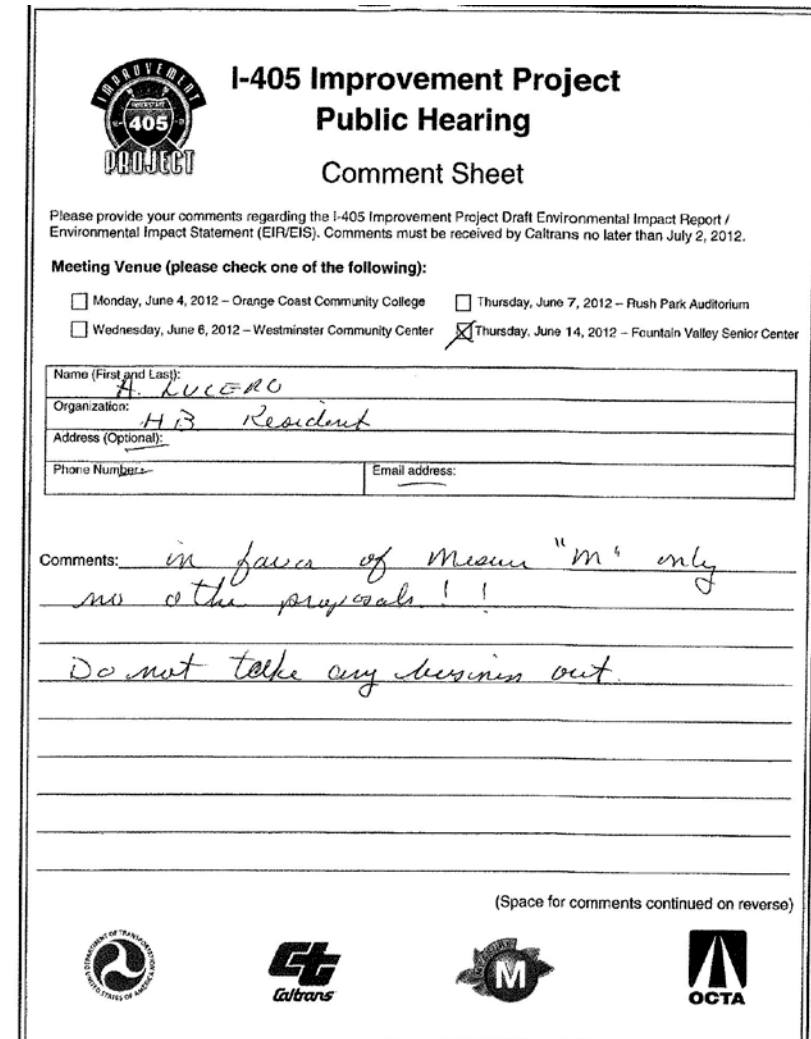 IMPROVEMENT
INTERSTATE
405
PROJECT
I-405 Improvement Project
Public Hearing
Comment Sheet
Please provide your comments regarding the I-405 Improvement Project Draft Environmental Impact Report /
Environmental Impact Statement (EIR/EIS). Comments must be received by Caltrans no later than July 2, 2012.
Meeting Venue (please check one of the following):
Monday, June 4, 2012 – Orange Coast Community College
Thursday, June 7, 2012 – Rush Park Auditorium
Wednesday, June 6, 2012 – Westminster Community Center
Thursday, June 14, 2012 – Fountain Valley Senior Center
Name (First and Last):
A. LUCERO
Organization:
HB Resident
Address (Optional):
Phone Number:
Email address:
Comments: in favor of Mesure "M" only
no othe proposals!!
Do not take any business out.
(Space for comments continued on reverse)
DEPARTMENT OF TRANSPORTATION
UNITED STATES OF AMERICA
Caltrans
MEASURE
M
OCTA